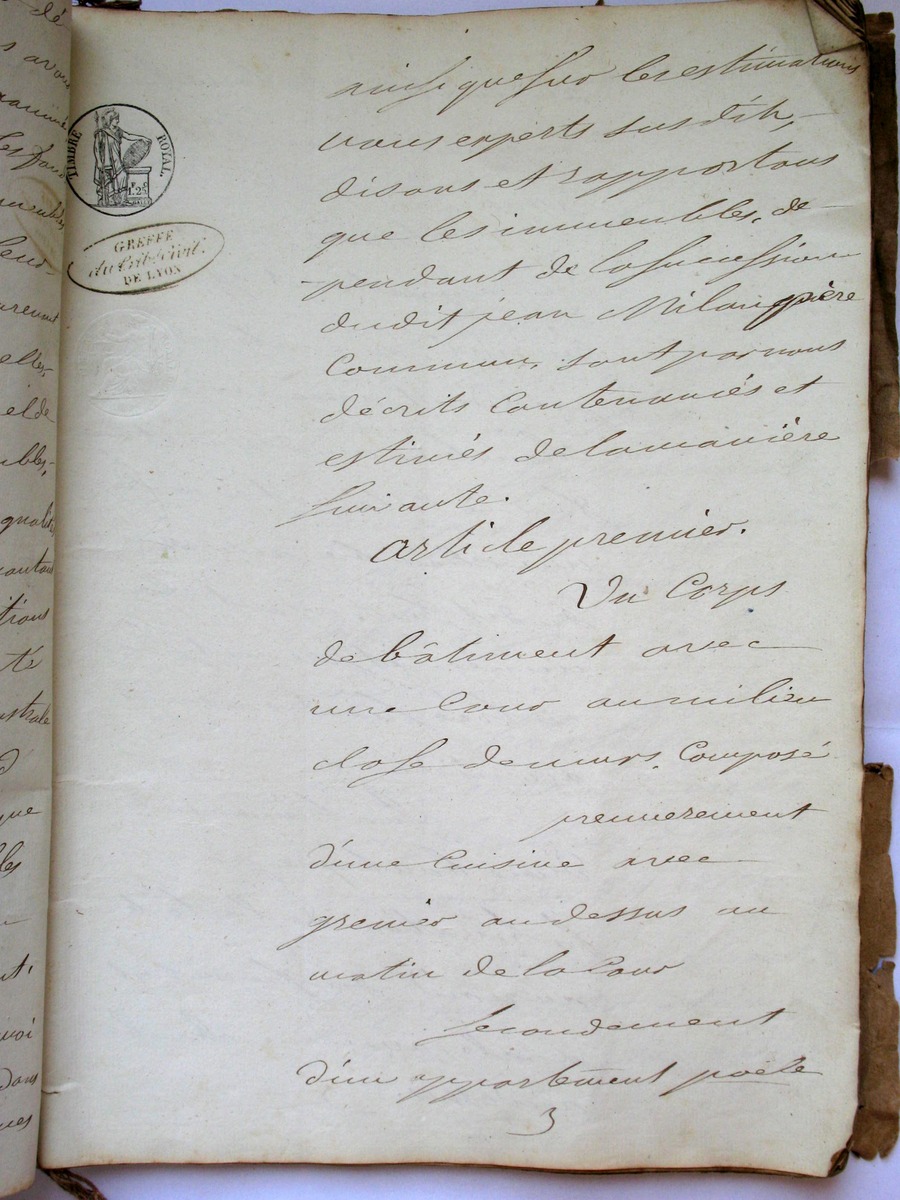 TIMBRE ROYAL
1F.25C
GREFFE
du Trib. Civil.
DE LYON
ainsi que sur les estimations
nous experts susdits,
disons et rapportons
que les immeubles, de-
pendant de la succession
dudit jean Milan père
commun, sont par nous
décrits contenanciés et
estimés de la manière
suivante.
article premier.
Un Corps
de bâtiment avec
une Cour au milieu
close de murs, Composé
premierement
d'une Cuisine avec
grenier au dessus au
matin de la Cour
secondement
d'un appartement poële
3
dé
avons
les
elles,
et de
ubles,
qualité
té
d'
que
les
nt,